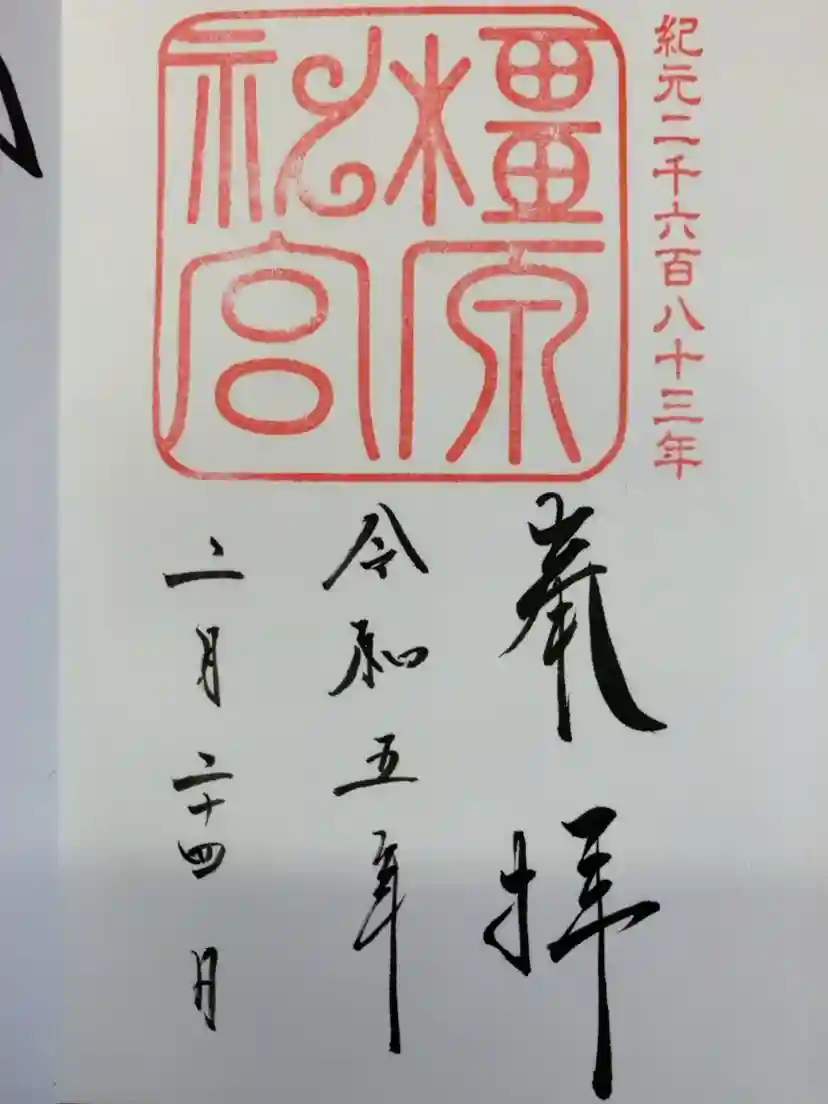 紀元二千六百八十三年
橿原神宮
奉拝
令和五年
二月二十四日